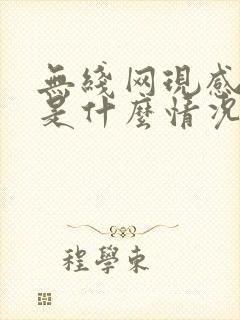 無綫网現感
是什麼情况
程學東